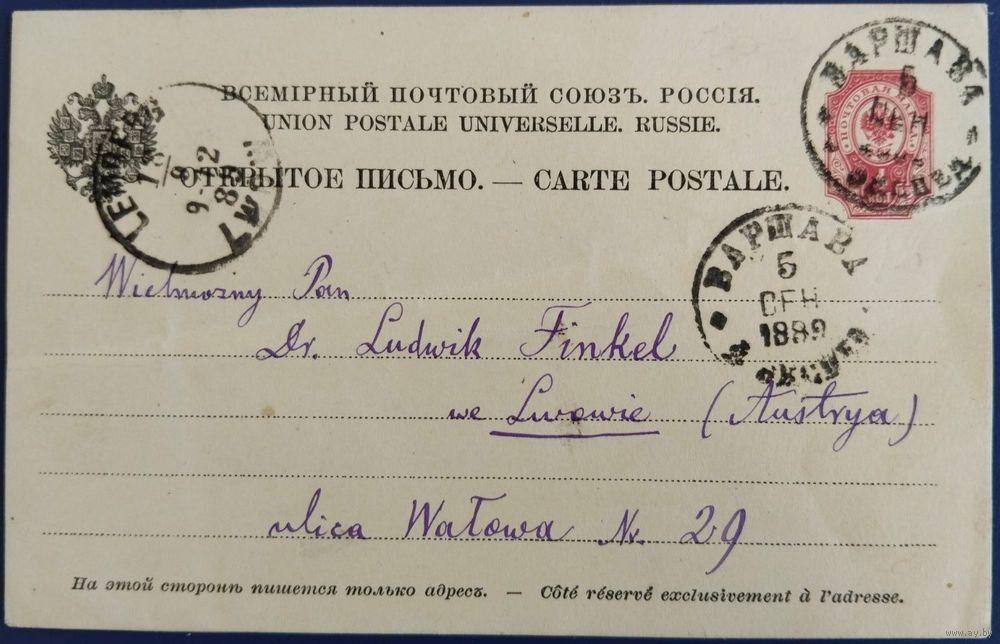 ВСЕМІРНЫЙ ПОЧТОВЫЙ СОЮЗЪ. РОССІЯ.
UNION POSTALE UNIVERSELLE. RUSSIE.
ОТКРЫТОЕ ПИСЬМО. — CARTE POSTALE.
ВАРШАВА
5
ПОЧТОВАЯ МАРКА
LEMBERG
9-12
89
LWÓW
ВАРШАВА
5
СЕН
1889
Wielmożny Pan
Dr. Ludwik Finkel
we Lwowie (Austrya)
ulica Wałowa Nr. 29
На этой сторонѣ пишется только адресъ. — Côté réservé exclusivement à l'adresse.
www.ay.by